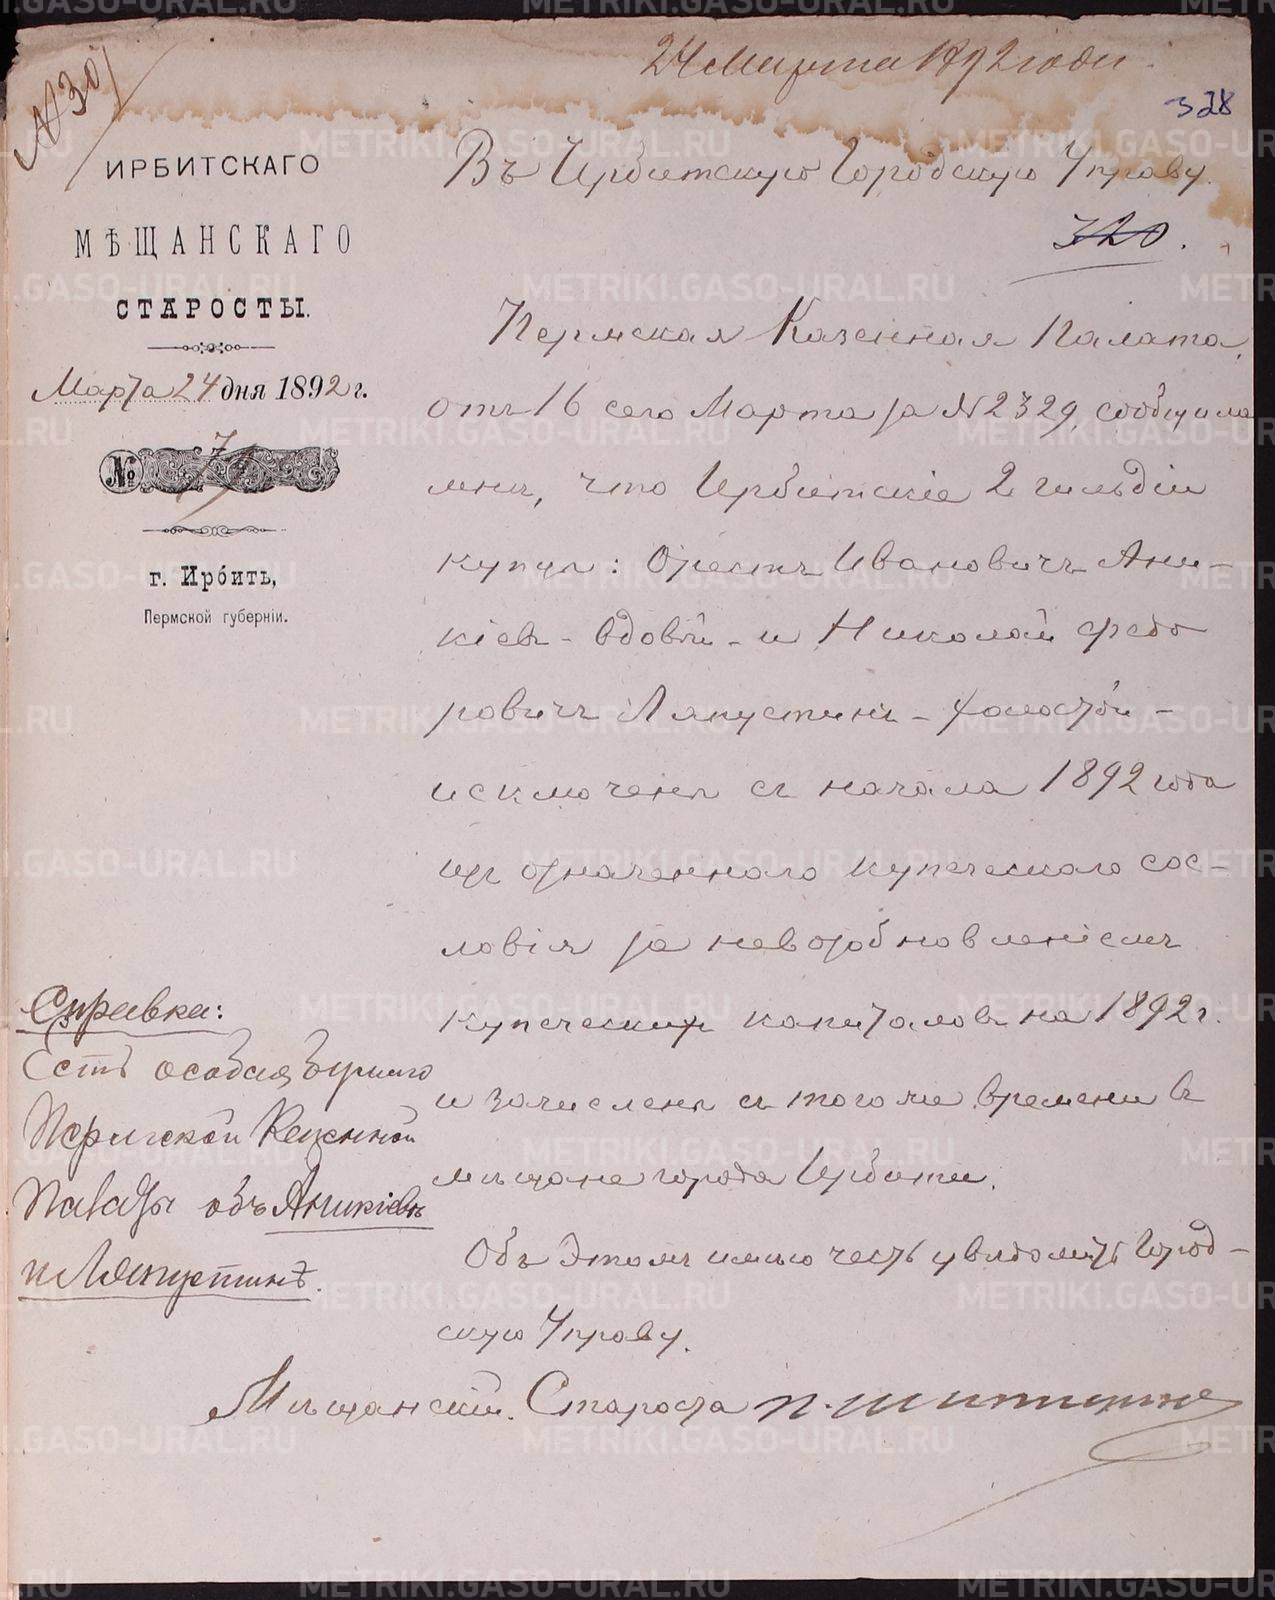 24 Марта 1892 года
328
ИРБИТСКАГО
МѢЩАНСКАГО
СТАРОСТЫ.
Марта 24 дня 1892 г.
№
г. Ирбить,
Пермской губерніи.
Въ Ирбитскую Городскую Управу.
320.
Пермская Казенная Палата,
отъ 16 сего Марта за №2329, сообщила
мнѣ, что Ирбитскіе 2 гильдіи
купцы: Орестъ Ивановичъ Ани-
кіевъ - вдовый - и Николай Ѳедо
ровичъ Ляпустинъ - холостой -
исключены съ начала 1892 года
изъ означеннаго купеческаго сос-
ловія за невозобновленіемъ
купеческихъ капиталовъ на 1892 г.
и зачислены съ того же времени въ
мѣщане города Ирбити.
Объ этомъ имѣю честь увѣдомить Город-
скую Управу.
Мѣщанскій Староста П.
Справка:
Есть особая бумага
Пермской Казенной
Палаты объ Аникіевѣ
и Ляпустинѣ.
METRIKI.GASO-URAL.RU